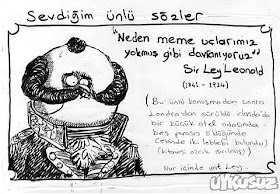 Sevdiğim ünlü sözler
"Neden meme uçlarımız
yokmuş gibi davranıyoruz"
Sir Ley Leonold
(1841 - 1914)
(Bu ünlü konuşmadan sonra
Londra'dan sürüldü İrlanda'da
bir küçük otel odasında
beş parasız öldüğünde
cebinde iki leblebi bulundu)
(kitabım olarak
Nur içinde yat Ley
UYKUSUZ